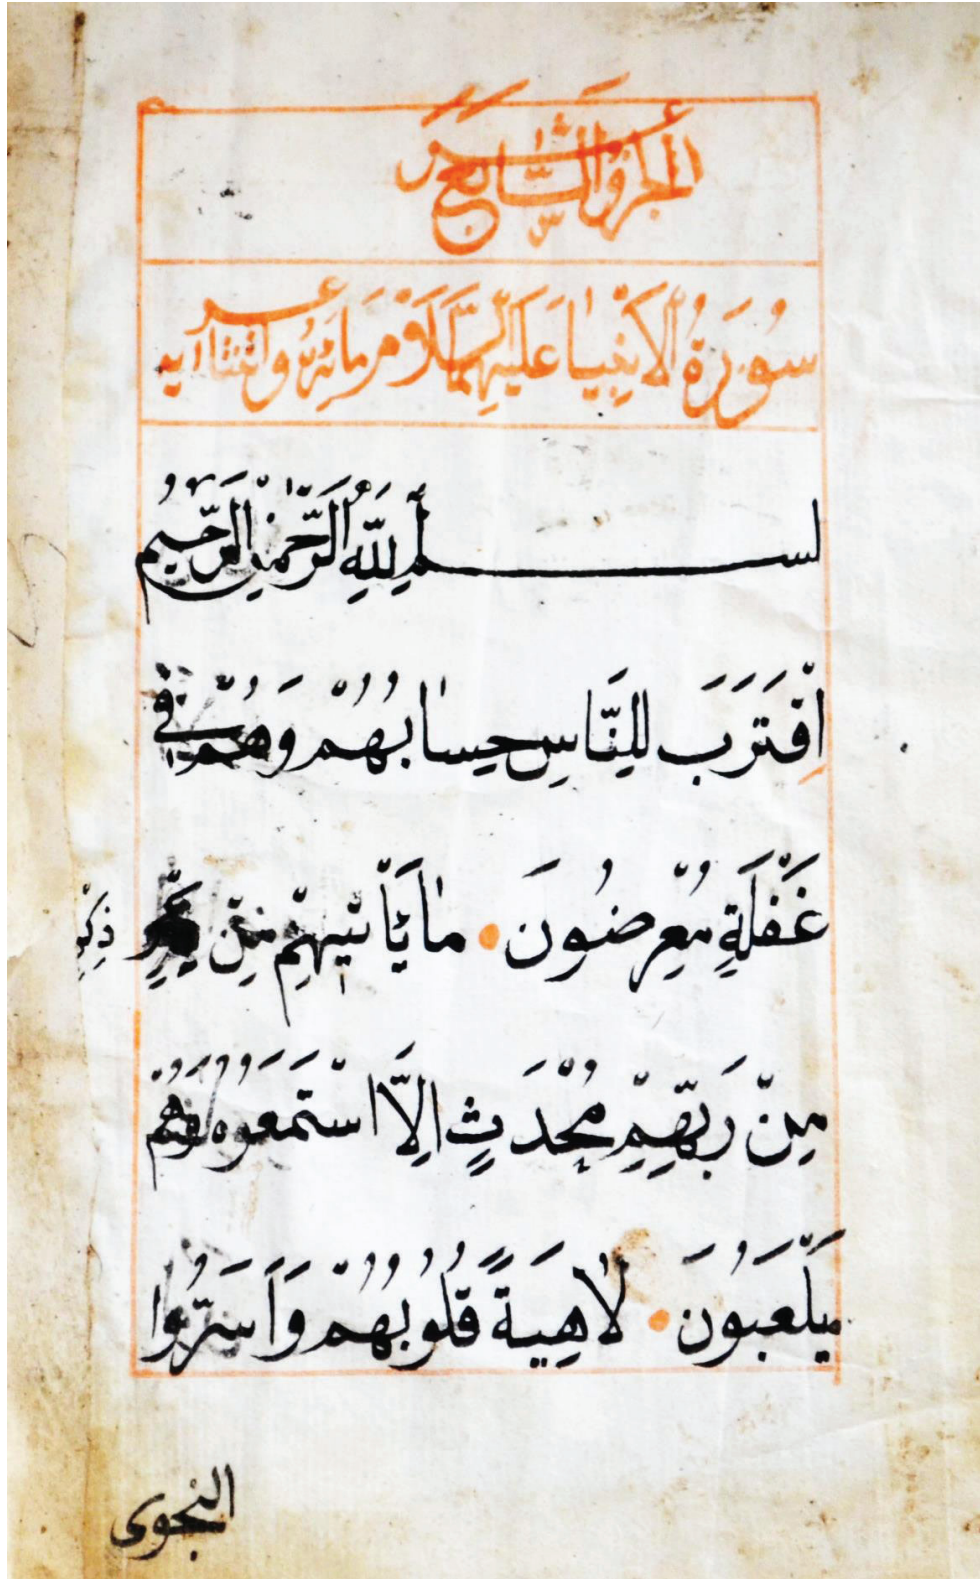 الجزؤ السّابع عشر
سُورَةُ الْاَنْبِيٰاءَ عَلَيْهِمُ السَّلَاوْمُ مَائَةٌ وَاثْنَتَا عشر ايه
بســــم اِللّٰهِ الرَّحْمٰنِ الرَّحِيمُ
اِقْتَرَبَ لِلنَّاسِ حِسٰابُهُمْ وَهُمْ فِي
غَفْلَةٍ مُعْرِضُونَ مٰا يَأْتِيهِمْ مِنْ ذِكْرٍ
مِنْ رَبِّهِمْ مُحْدَثٍ اِلَّا اسْتَمَعُوهُ وَهُمْ
يَلْعَبُونَ لٰاهِيَةً قُلُوبُهُمْ وَاَسَرُّوا
النجوى